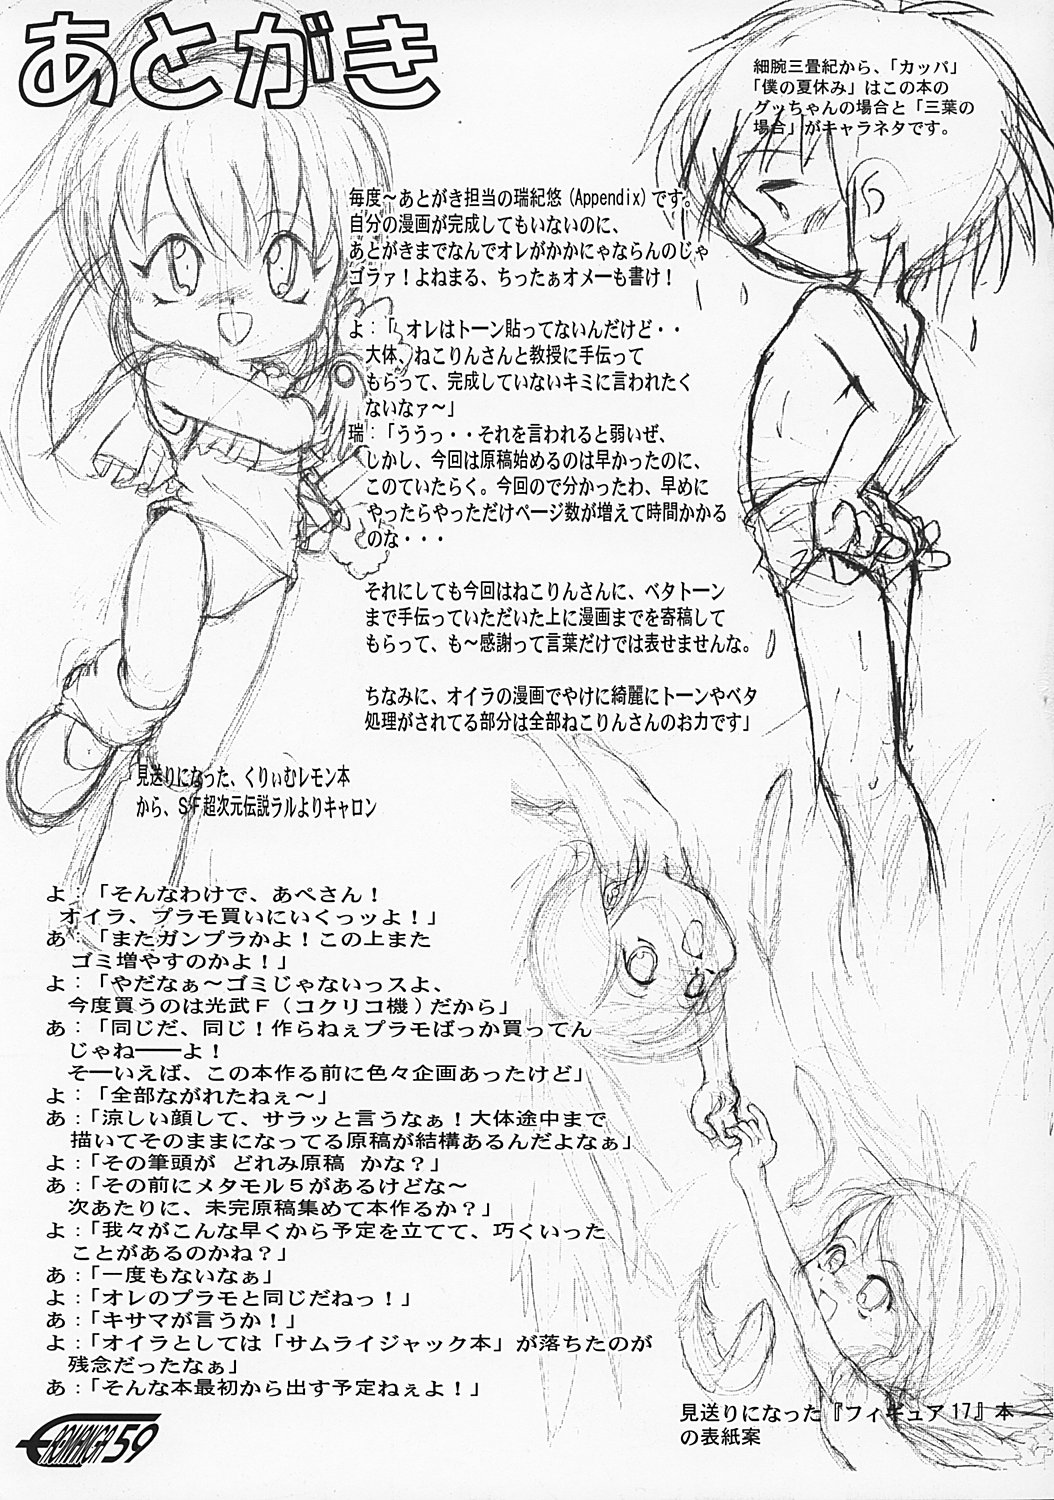 あとがき
細腕三畳紀から、「カッパ」
「僕の夏休み」はこの本の
グッちゃんの場合と「三葉の
場合」がキャラネタです。
毎度～あとがき担当の瑞紀悠(Appendix)です。
自分の漫画が完成してもいないのに、
あとがきまでなんでオレがかかにゃならんのじゃ
ゴラァ！よねまる、ちったぁオメーも書け！
よ：「 オレはトーン貼ってないんだけど・・
大体、ねこりんさんと教授に手伝って
もらって、完成していないキミに言われたく
ないなァ～」
瑞：「ううっ・・それを言われると弱いぜ、
しかし、今回は原稿始めるのは早かったのに、
このていたらく。今回ので分かったわ、早めに
やったらやっただけページ数が増えて時間かかる
のな・・・
それにしても今回はねこりんさんに、ベタトーン
まで手伝っていただいた上に漫画までを寄稿して
もらって、も～感謝って言葉だけでは表せませんな。
ちなみに、オイラの漫画でやけに綺麗にトーンやベタ
処理がされてる部分は全部ねこりんさんのお力です」
見送りになった、くりぃむレモン本
から、ＳＦ超次元伝説ラルよりキャロン
よ：「そんなわけで、あぺさん！
オイラ、プラモ買いにいくっッよ！」
あ：「またガンプラかよ！この上また
ゴミ増やすのかよ！」
よ：「やだなぁ～ゴミじゃないっスよ、
今度買うのは光武Ｆ（コクリコ機）だから」
あ：「同じだ、同じ！作らねぇプラモばっか買ってん
じゃね――よ！
そ―いえば、この本作る前に色々企画あったけど」
よ：「全部ながれたねぇ～」
あ：「涼しい顔して、サラッと言うなぁ！大体途中まで
描いてそのままになってる原稿が結構あるんだよなぁ」
よ：「その筆頭が どれみ原稿 かな？」
あ：「その前にメタモル５があるけどな～
次あたりに、未完原稿集めて本作るか？」
よ：「我々がこんな早くから予定を立てて、巧くいった
ことがあるのかね？」
あ：「一度もないなぁ」
よ：「オレのプラモと同じだねっ！」
あ：「キサマが言うか！」
よ：「オイラとしては「サムライジャック本」が落ちたのが
残念だったなぁ」
あ：「そんな本最初から出す予定ねぇよ！」
見送りになった『フィギュア17』本
の表紙案
EROMANGA 59